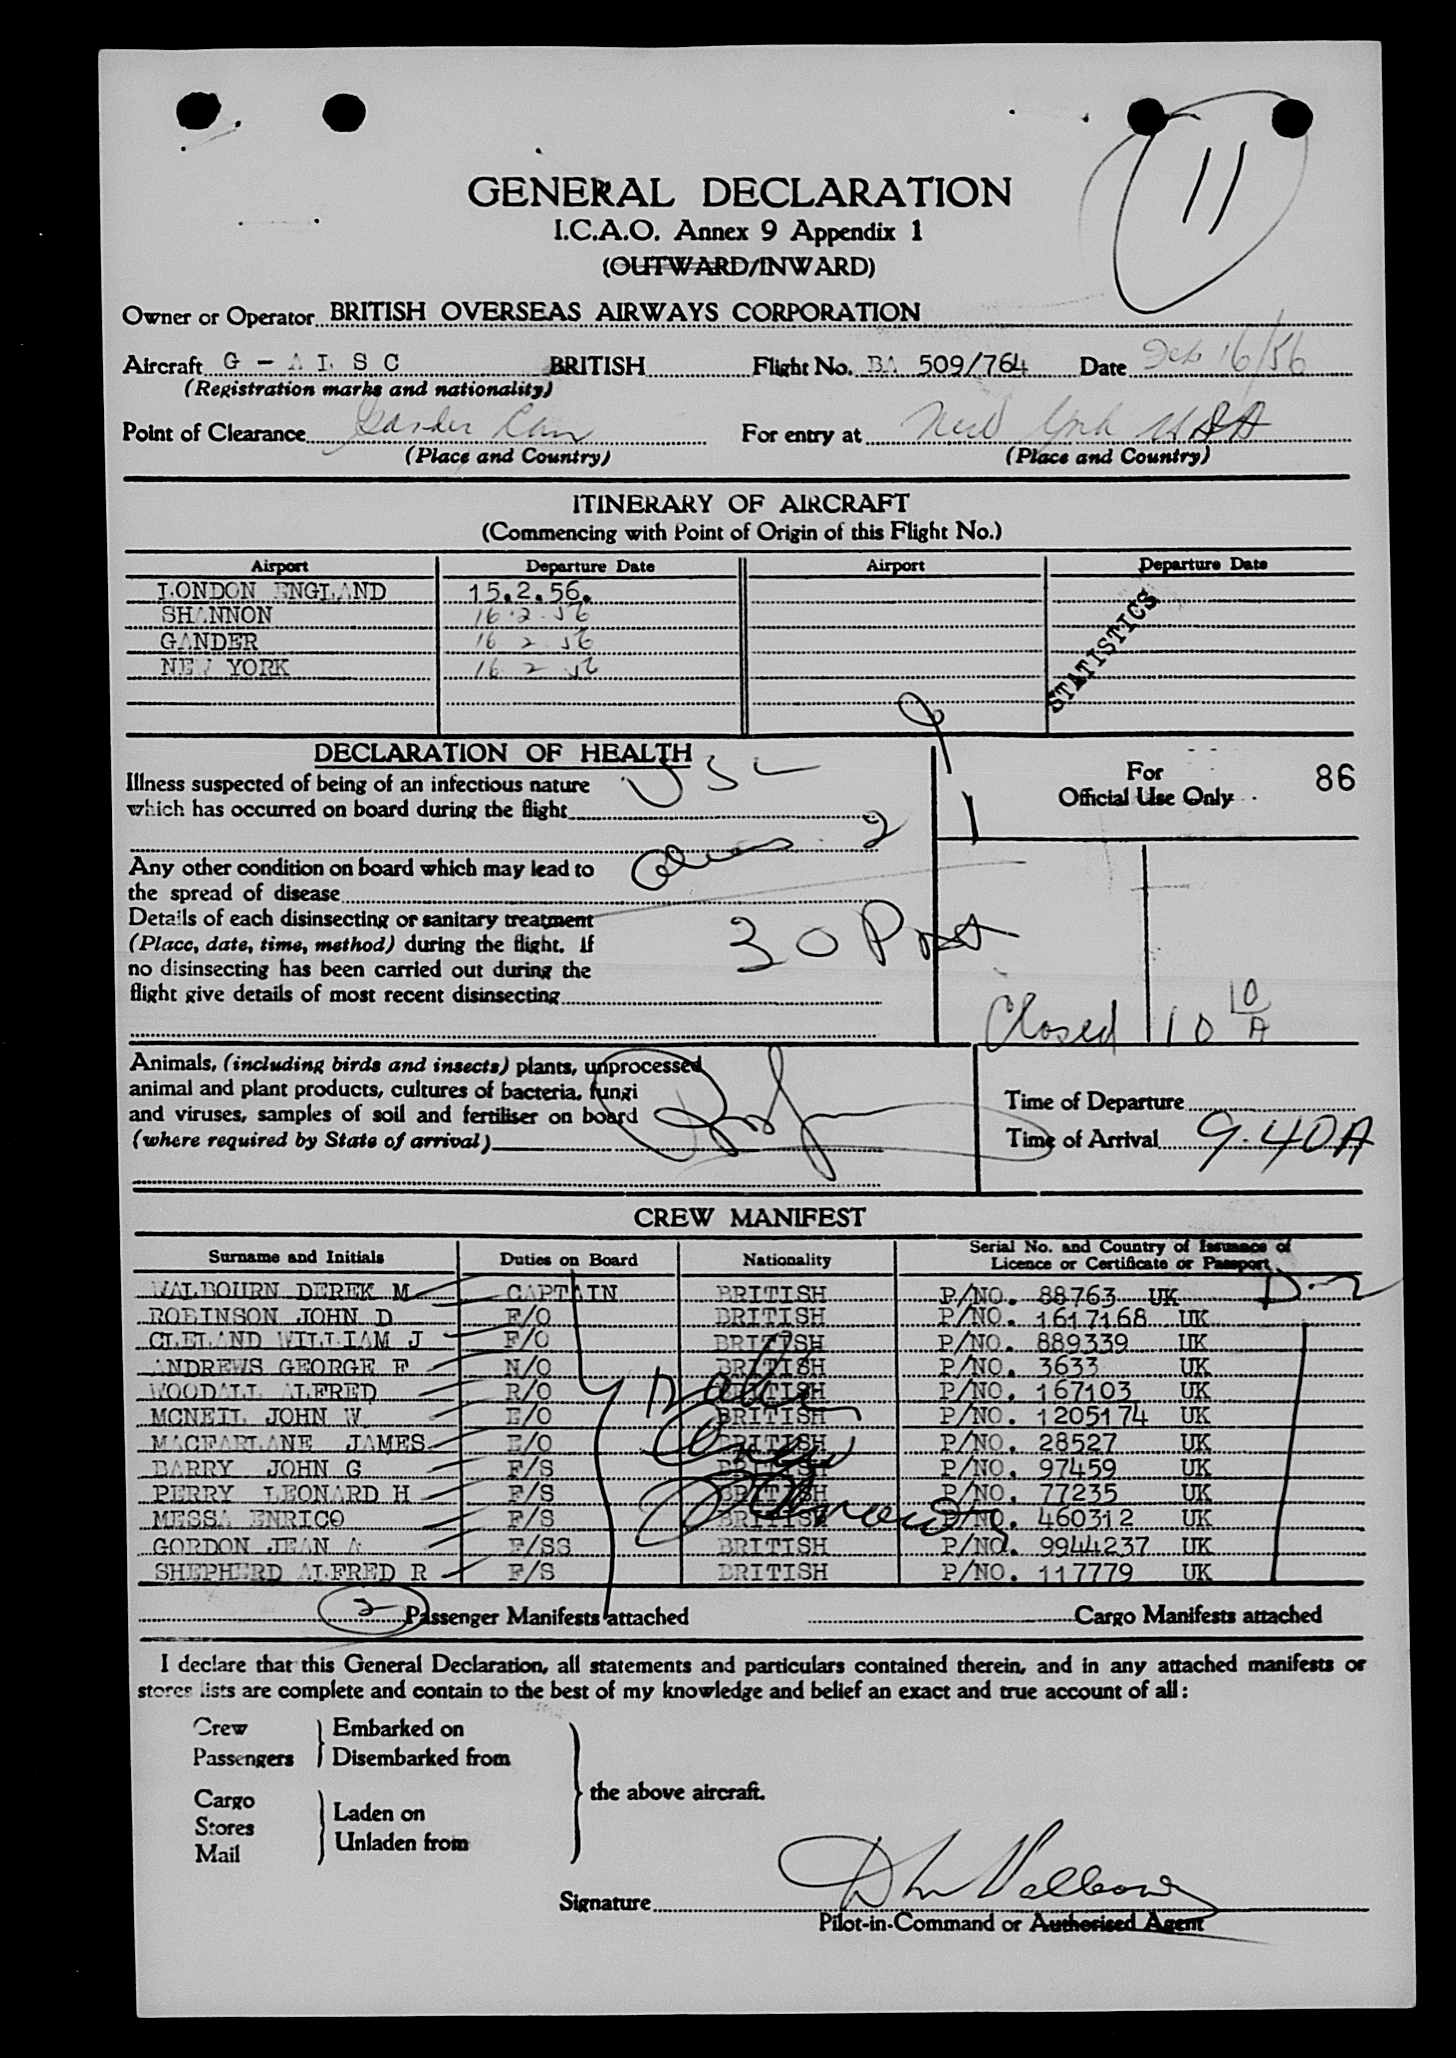 11
GENERAL DECLARATION
I.C.A.O. Annex 9 Appendix 1
(OUTWARD/INWARD)
Owner or Operator BRITISH OVERSEAS AIRWAYS CORPORATION
Aircraft G - A L S C BRITISH Flight No. BA 509/764 Date Feb 16/56
(Registration marks and nationality)
Point of Clearance Gander Can For entry at New York USA
(Place and Country) (Place and Country)
ITINERARY OF AIRCRAFT
(Commencing with Point of Origin of this Flight No.)
Airport Departure Date Airport Departure Date
LONDON ENGLAND 15.2.56.
SHANNON 16.2.56
GANDER 16 2 56
NEW YORK 16 2 56
STATISTICS
DECLARATION OF HEALTH
Illness suspected of being of an infectious nature
which has occurred on board during the flight
For
Official Use Only
86
Any other condition on board which may lead to
the spread of disease
2
Details of each disinsecting or sanitary treatment
(Place, date, time, method) during the flight. If
no disinsecting has been carried out during the
flight give details of most recent disinsecting
30
Closed 10 10 A
Animals, (including birds and insects) plants, unprocessed
animal and plant products, cultures of bacteria, fungi
and viruses, samples of soil and fertiliser on board
(where required by State of arrival)
Time of Departure
Time of Arrival 9.40A
CREW MANIFEST
Surname and Initials Duties on Board Nationality Serial No. and Country of Issuance of Licence or Certificate or Passport
WALBOURN DEREK M CAPTAIN BRITISH P/NO. 88763 UK D-2
ROBINSON JOHN D F/O BRITISH P/NO. 1617168 UK
CLELAND WILLIAM J F/O BRITISH P/NO. 889339 UK
ANDREWS GEORGE F N/O BRITISH P/NO. 3633 UK
WOODALL ALFRED R/O BRITISH P/NO. 167103 UK
MCNEIL JOHN W. E/O BRITISH P/NO. 1205174 UK
MACFARLANE JAMES E/O BRITISH P/NO. 28527 UK
BARRY JOHN G F/S BRITISH P/NO. 97459 UK
PERRY LEONARD H F/S BRITISH P/NO. 77235 UK
MESSA ENRICO F/S BRITISH P/NO. 460312 UK
GORDON JEAN A F/SS BRITISH P/NO. 9944237 UK
SHEPHERD ALFRED R F/S BRITISH P/NO. 117779 UK
2 Passenger Manifests attached Cargo Manifests attached
I declare that this General Declaration, all statements and particulars contained therein, and in any attached manifests or
stores lists are complete and contain to the best of my knowledge and belief an exact and true account of all:
Crew Embarked on
Passengers Disembarked from
the above aircraft.
Cargo
Stores Laden on
Mail Unladen from
Signature
Pilot-in-Command or Authorised Agent